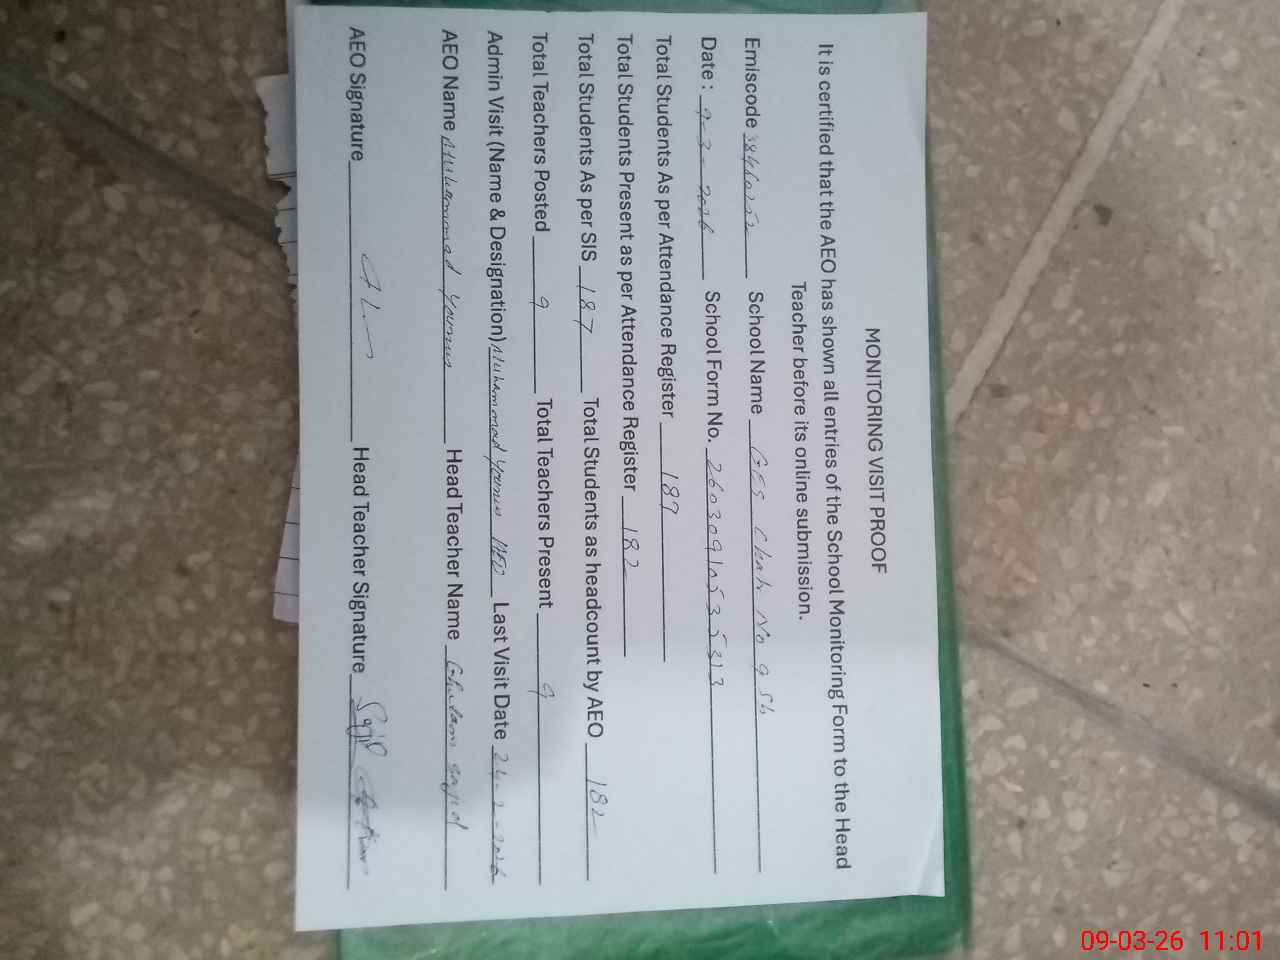 MONITORING VISIT PROOF
It is certified that the AEO has shown all entries of the School Monitoring Form to the Head
Teacher before its online submission.
Emiscode 38460252 School Name GES Chak No 9 Sb
Date: 9-3-2026 School Form No. 26030910535313
Total Students As per Attendance Register 189
Total Students Present as per Attendance Register 182
Total Students As per SIS 187 Total Students as headcount by AEO 182
Total Teachers Posted 9 Total Teachers Present 9
Admin Visit (Name & Designation) Muhammad Younus AEO Last Visit Date 24-2-2026
AEO Name Muhammad Younus Head Teacher Name Ghulam Sajid
AEO Signature Head Teacher Signature
09-03-26 11:01